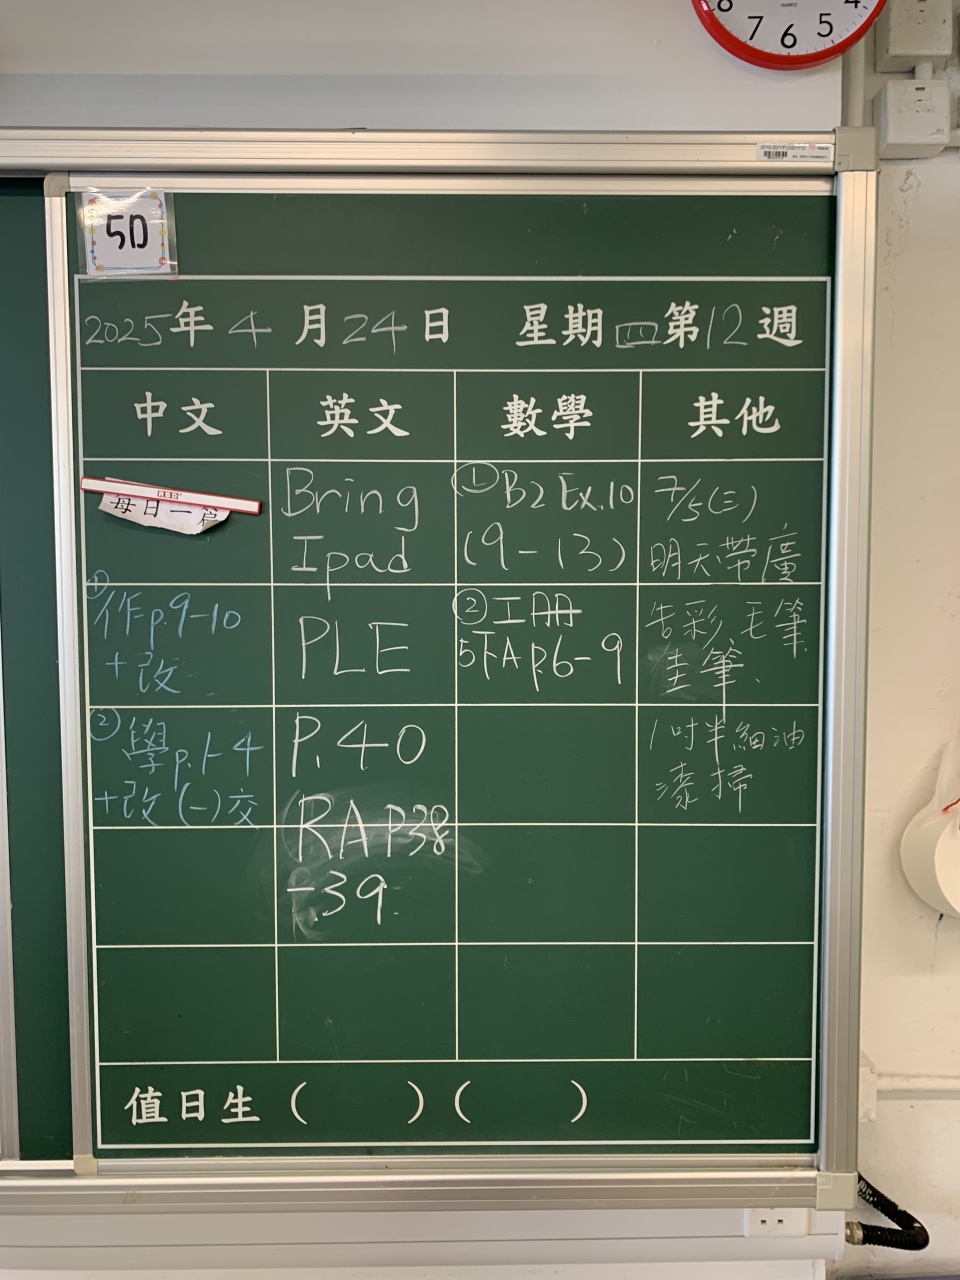 8
7
6
5
4
QUARTZ
5D
2025年4月24日 星期四第12週
中文
英文
數學
其他
RBD
每日一篇
① 作p.9-10
+改
② 學p.1-4
+改(一)交
Bring
Ipad
PLE
P.40
RA P38
-39
① B2 Ex.10
(9-13)
② 工冊
5下A P.6-9
7/5(三)
明天帶廣
告彩、毛筆
圭筆、
1吋半細油
漆掃
值日生( )( )